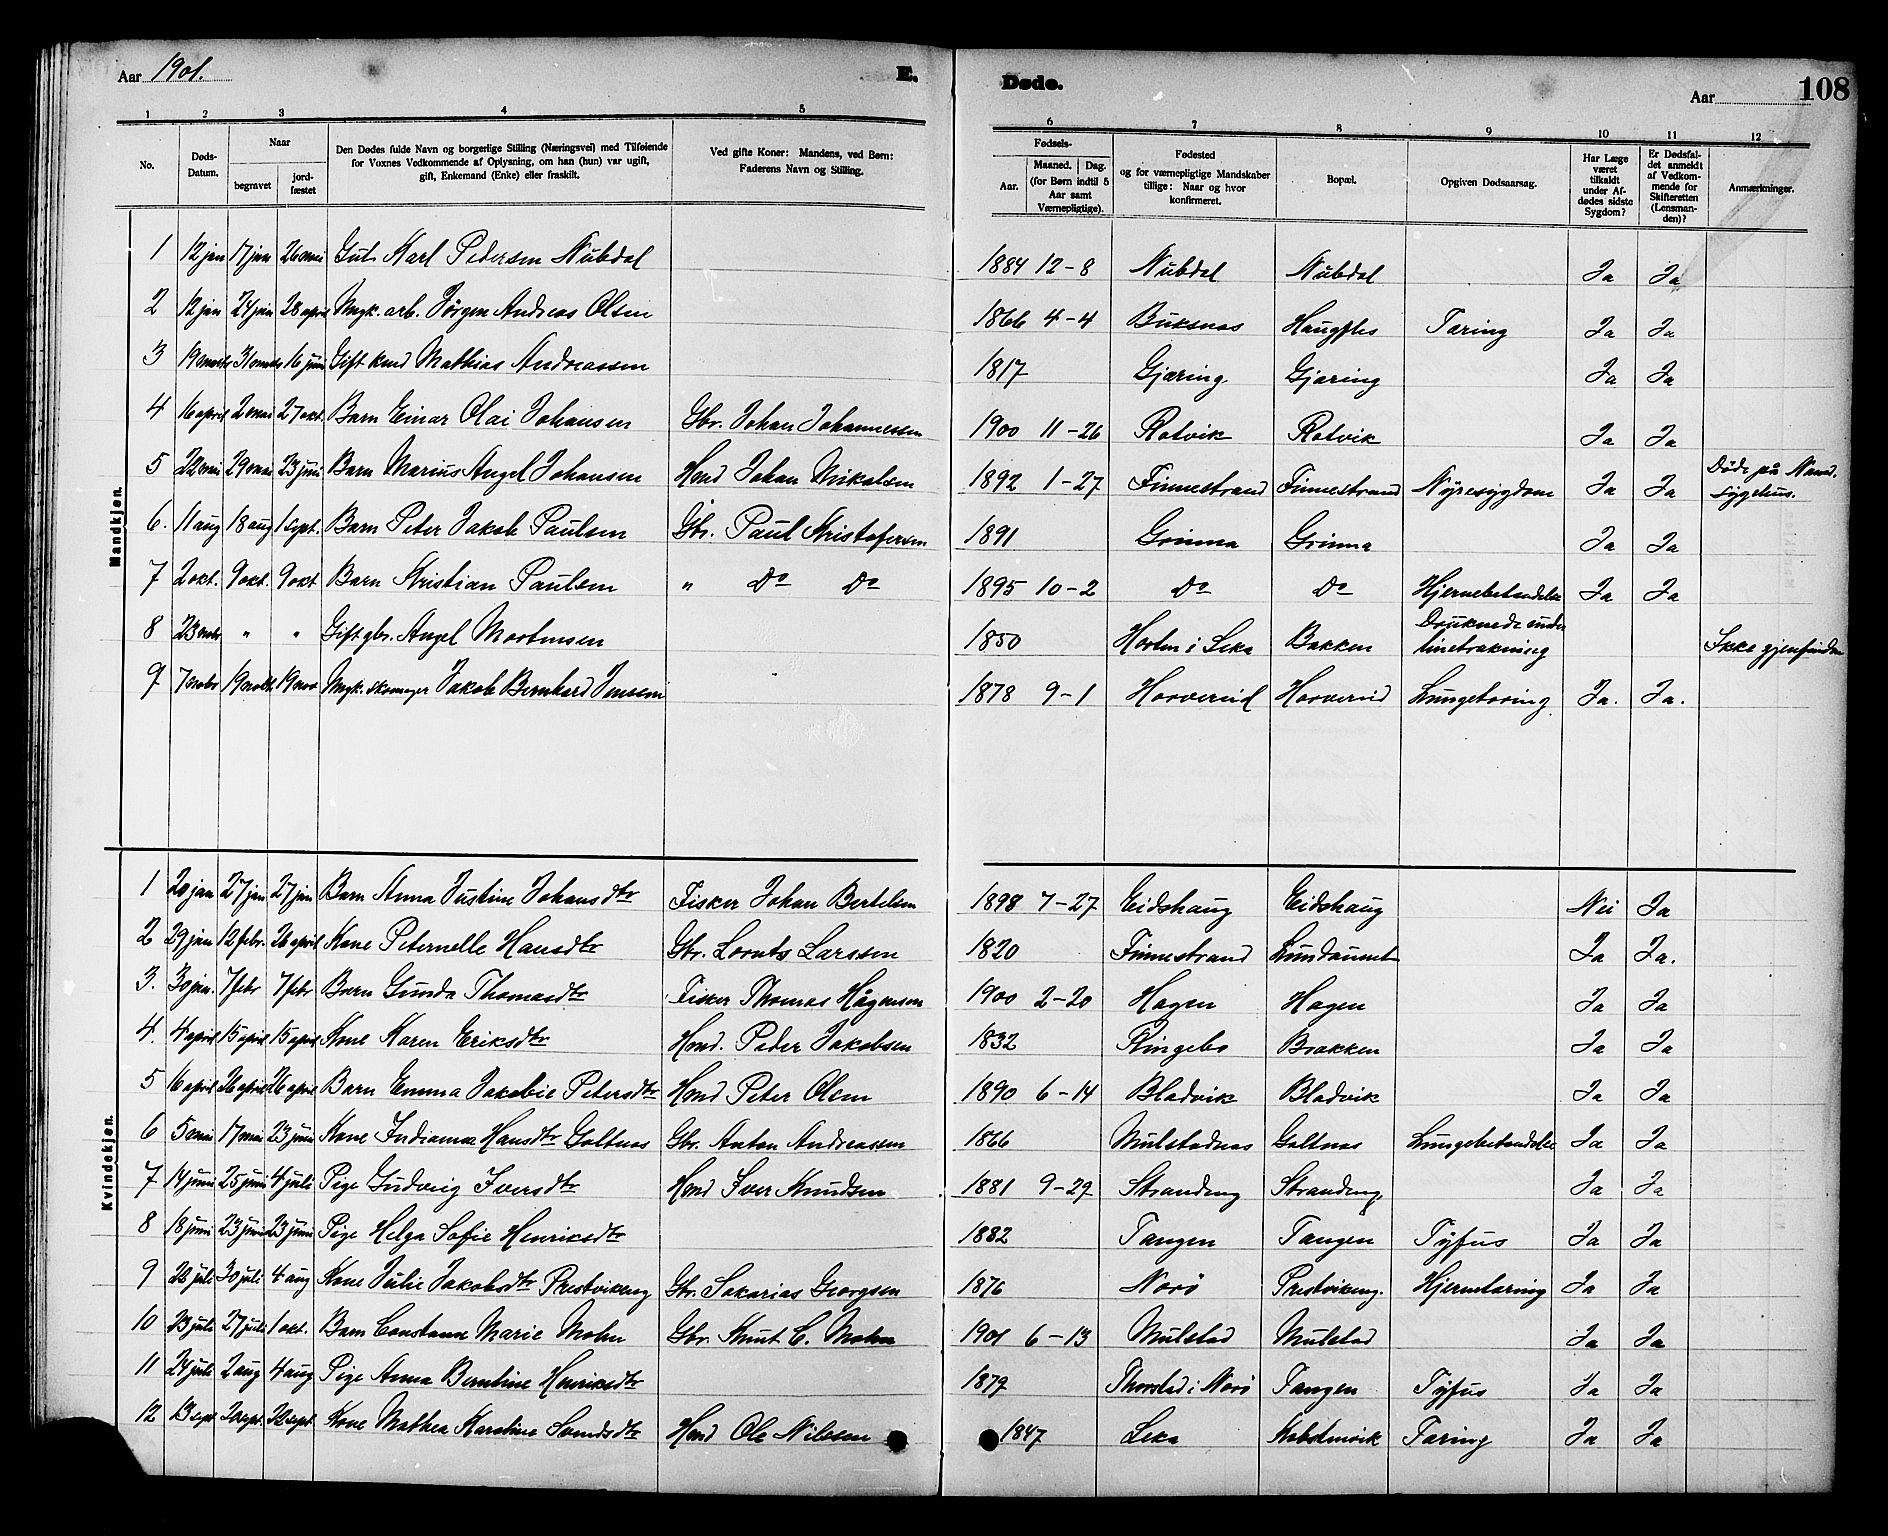 Aar 1901.
E.
Døde.
Aar
108
1 2 3 4 5 6 7 8 9 10 11 12
No.
Døds-Datum.
Naar
begravet
jord-fæstet
Den Dødes fulde Navn og borgerlige Stilling (Næringsvei) med Tilføiende
for Voxnes Vedkommende af Oplysning, om han (hun) var ugift,
gift, Enkemand (Enke) eller fraskilt.
Ved gifte Koner: Mandens, ved Børn:
Faderens Navn og Stilling.
Fødsels-
Aar.
Maaned. Dag.
(for Børn indtil 5
Aar samt
Værnepligtige).
Fødested
og for værnepligtige Mandskaber
tillige: Naar og hvor
konfirmeret.
Bopæl.
Opgiven Dødsaarsag.
Har Læge
været
tilkaldt
under Af-
dødes sidste
Sygdom?
Er Dødsfal-
det anmeldt
af Vedkom-
mende for
Skifteretten
(Lensman-
den)?
Anmærkninger.
Mandkjøn.
1 12 jan 17 jan 26 mai Gut Karl Pedersen Nubdal 1884 12-8 Nubdal Nubdal Ja Ja
2 12 jan 24 jan 28 april Ungk. arb. Jørgen Andreas Olsen 1866 4-4 Buksnæs Taring Ja Ja
3 19 marts 31 marts 16 juni Gift Mathias Andreassen 1817 Gjæring Gjæring Ja Ja
4 16 april 2 mai 27 okt. Barn Einar Olai Johansen Gbr. Johan Johannessen 1900 11-26 Rotvik Rotvik Ja Ja
5 22 mai 29 mai 23 juni Barn Marius Angel Johansen Hmd Johan Nikolsen 1892 1-27 Finnestrand Finnestrand Nyresygdom Ja Ja Døde på Namd. sygehus.
6. 11 aug 18 aug 1 sept. Barn Peter Jakob Paulsen Gbr. Paul Kristofersen 1891 Grinna Grinna Ja Ja
7 2 okt. 9 okt. 9 okt Barn Kristian Paulsen " Do Do 1895 10-2 Do Do Hjernebetændelse Ja Ja
8 23 " " Gift gbr. Angel Mortensen 1850 Horten i Leka Bakken Druknede under linetrækning Ikke gjenfunden
9. 7 nobr 19 19 nov Ungk. skomager Jakob Bernhard Jensen 1878 9-1 Horvereid Horvereid Lungetæring Ja. Ja.
Kvindekjøn.
1 20 jan 27 jan 27 jan Barn Anna Justine Johansdtr Fisker Johan Bertelsen 1898 7-27 Eidshaug Eidshaug Nei Ja
2 29 jan 12 febr. 26 april Kone Peternelle Hansdtr Gbr. Lornts Larssen 1820 Finnestrand Ja Ja.
3. 30 jan. 7 febr 7 febr Barn Gunda Thomasdtr Fisker Thomas Hågensen 1900 2-20 Hagen Hagen Ja Ja
4. 4 april 15 april 15 april Kone Karen Eriksdtr Hmd. Peder Jakobsen 1832 Ringebo Brakken Ja Ja
5 16 april 26 april 26 april Barn Emma Jakobie Petersdtr Hmd Peter Olsen 1890 6-14 Bladvik Bladvik Ja Ja
6 5 mai 17 mai 23 juni Kone Indianna Hansdtr Galtnæs Gbr. Anton Andreassen 1866 Mulstadnæs Galtnæs Lungebetændelse Ja Ja
7 14 juni 25 juni 4 juli Pige Gudvig Iversdtr Hmd Iver Knudsen 1881 9-29 Strandeng Strandeng. Ja Ja
8 18 juni 23 juni 23 juni Pige Helga Sofie Henriksdtr 1882 Tangen Tangen Tyfus Ja Ja
9 22 juli 30 juli 4 aug Kone Julie Jakobsdtr Prestvikeng Gbr. Sakarias Georgsen 1876 Norø Prestvikeng. Hjernetæring Ja Ja
10 23 juli 27 juli 1 okt. Barn Constanse Marie Mohn Gbr. Knut C. Mohn 1901 6-13 Mulstad Mulstad Ja Ja
11 24 juli 2 aug 4 aug Pige Anna Berntine Henriksdtr 1879 Thorstad i Norø Tangen Tyfus Ja Ja
12 13 sept 20 sept. 22 sept. Kone Mathea Karoline Hmd Ole Nilssen 1847 Leka Taring Ja Ja